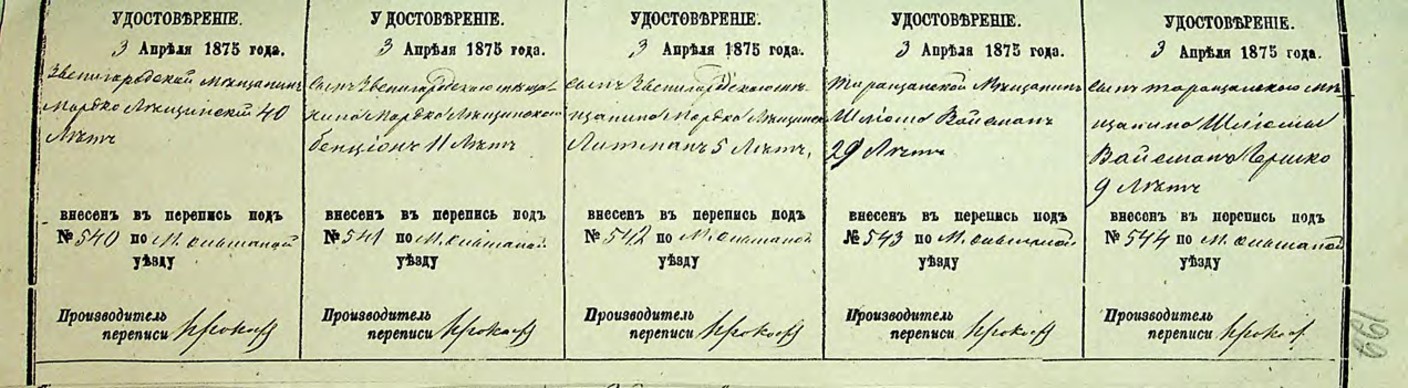 УДОСТОВѢРЕНІЕ.
3 Апрѣля 1875 года.
Звенигородскій мѣщанинъ
Мордко Лѣщинскій 40
Лѣтъ
внесенъ въ перепись подъ
№ 540 по М. Ольшаной
уѣзду
Производитель
переписи
УДОСТОВѢРЕНІЕ.
3 Апрѣля 1875 года.
сынъ Звенигородскаго мѣща-
нина Мордко Лѣщинскаго
Бенціонъ 11 Лѣтъ
внесенъ въ перепись подъ
№ 541 по М. Ольшаной
уѣзду
Производитель
переписи
УДОСТОВѢРЕНІЕ.
3 Апрѣля 1875 года.
сынъ Звенигородскаго мѣ-
щанина Мордко Лѣщинск
Литманъ 5 Лѣтъ,
внесенъ въ перепись подъ
№ 542 по М. Ольшаной
уѣзду
Производитель
переписи
УДОСТОВѢРЕНІЕ.
3 Апрѣля 1875 года.
Таращанскій Мѣщанинъ
Шліома Вайсманъ
29 Лѣтъ
внесенъ въ перепись подъ
№ 543 по М. Ольшаной
уѣзду
Производитель
переписи
УДОСТОВѢРЕНІЕ.
3 Апрѣля 1875 года.
сынъ таращанскаго мѣ-
щанина Шліомы
Вайсманъ Гершко
9 Лѣтъ
внесенъ въ перепись подъ
№ 544 по М. Ольшаной
уѣзду
Производитель
переписи
199